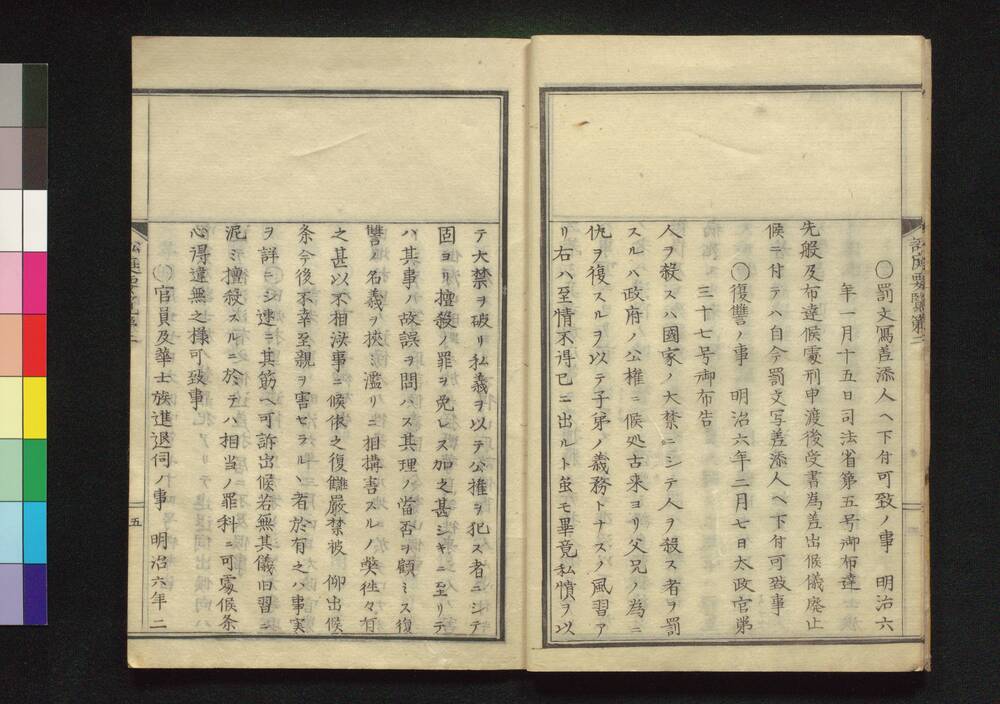 訟庭要覧第二
○罰文寫差添人ヘ下付可致ノ事　明治六
年一月十五日司法省第五号御布達
先般及布達候處刑申渡後受書為差出候儀廃止
候ニ付テハ自今罰文写差添人ヘ下付可致事
○復讐ノ事　明治六年二月七日太政官第
三十七号御布告
人ヲ殺スハ國家ノ大禁ニシテ人ヲ殺ス者ヲ罰
スルハ政府ノ公権ニ候処古来ヨリ父兄ノ為ニ
仇ヲ復スルヲ以テ子弟ノ義務トナスノ風習ア
リ右ハ至情不得已ニ出ルト虽モ畢竟私憤ヲ以
テ大禁ヲ破リ私義ヲ以テ公権ヲ犯ス者ニシテ
固ヨリ擅殺ノ罪ヲ免レス加之甚シキニ至リテ
ハ其事ノ故誤ヲ問ハス其理ノ當否ヲ顧ミス復
讐ノ名義ヲ挾ミ濫リニ相搆害スルノ獘徃々有
之甚以不相済事ニ候依之復讎嚴禁被　仰出候
条今後不幸至親ヲ害セラルヽ者於有之ハ事実
ヲ詳ニシ速ニ其筋ヘ可訴出候若無其儀旧習ニ
泥ミ擅殺スルニ於テハ相当ノ罪科ニ可處候条
心得違無之様可致事
○官員及華士族進退伺ノ事　明治六年二
訟庭要覧第二
五